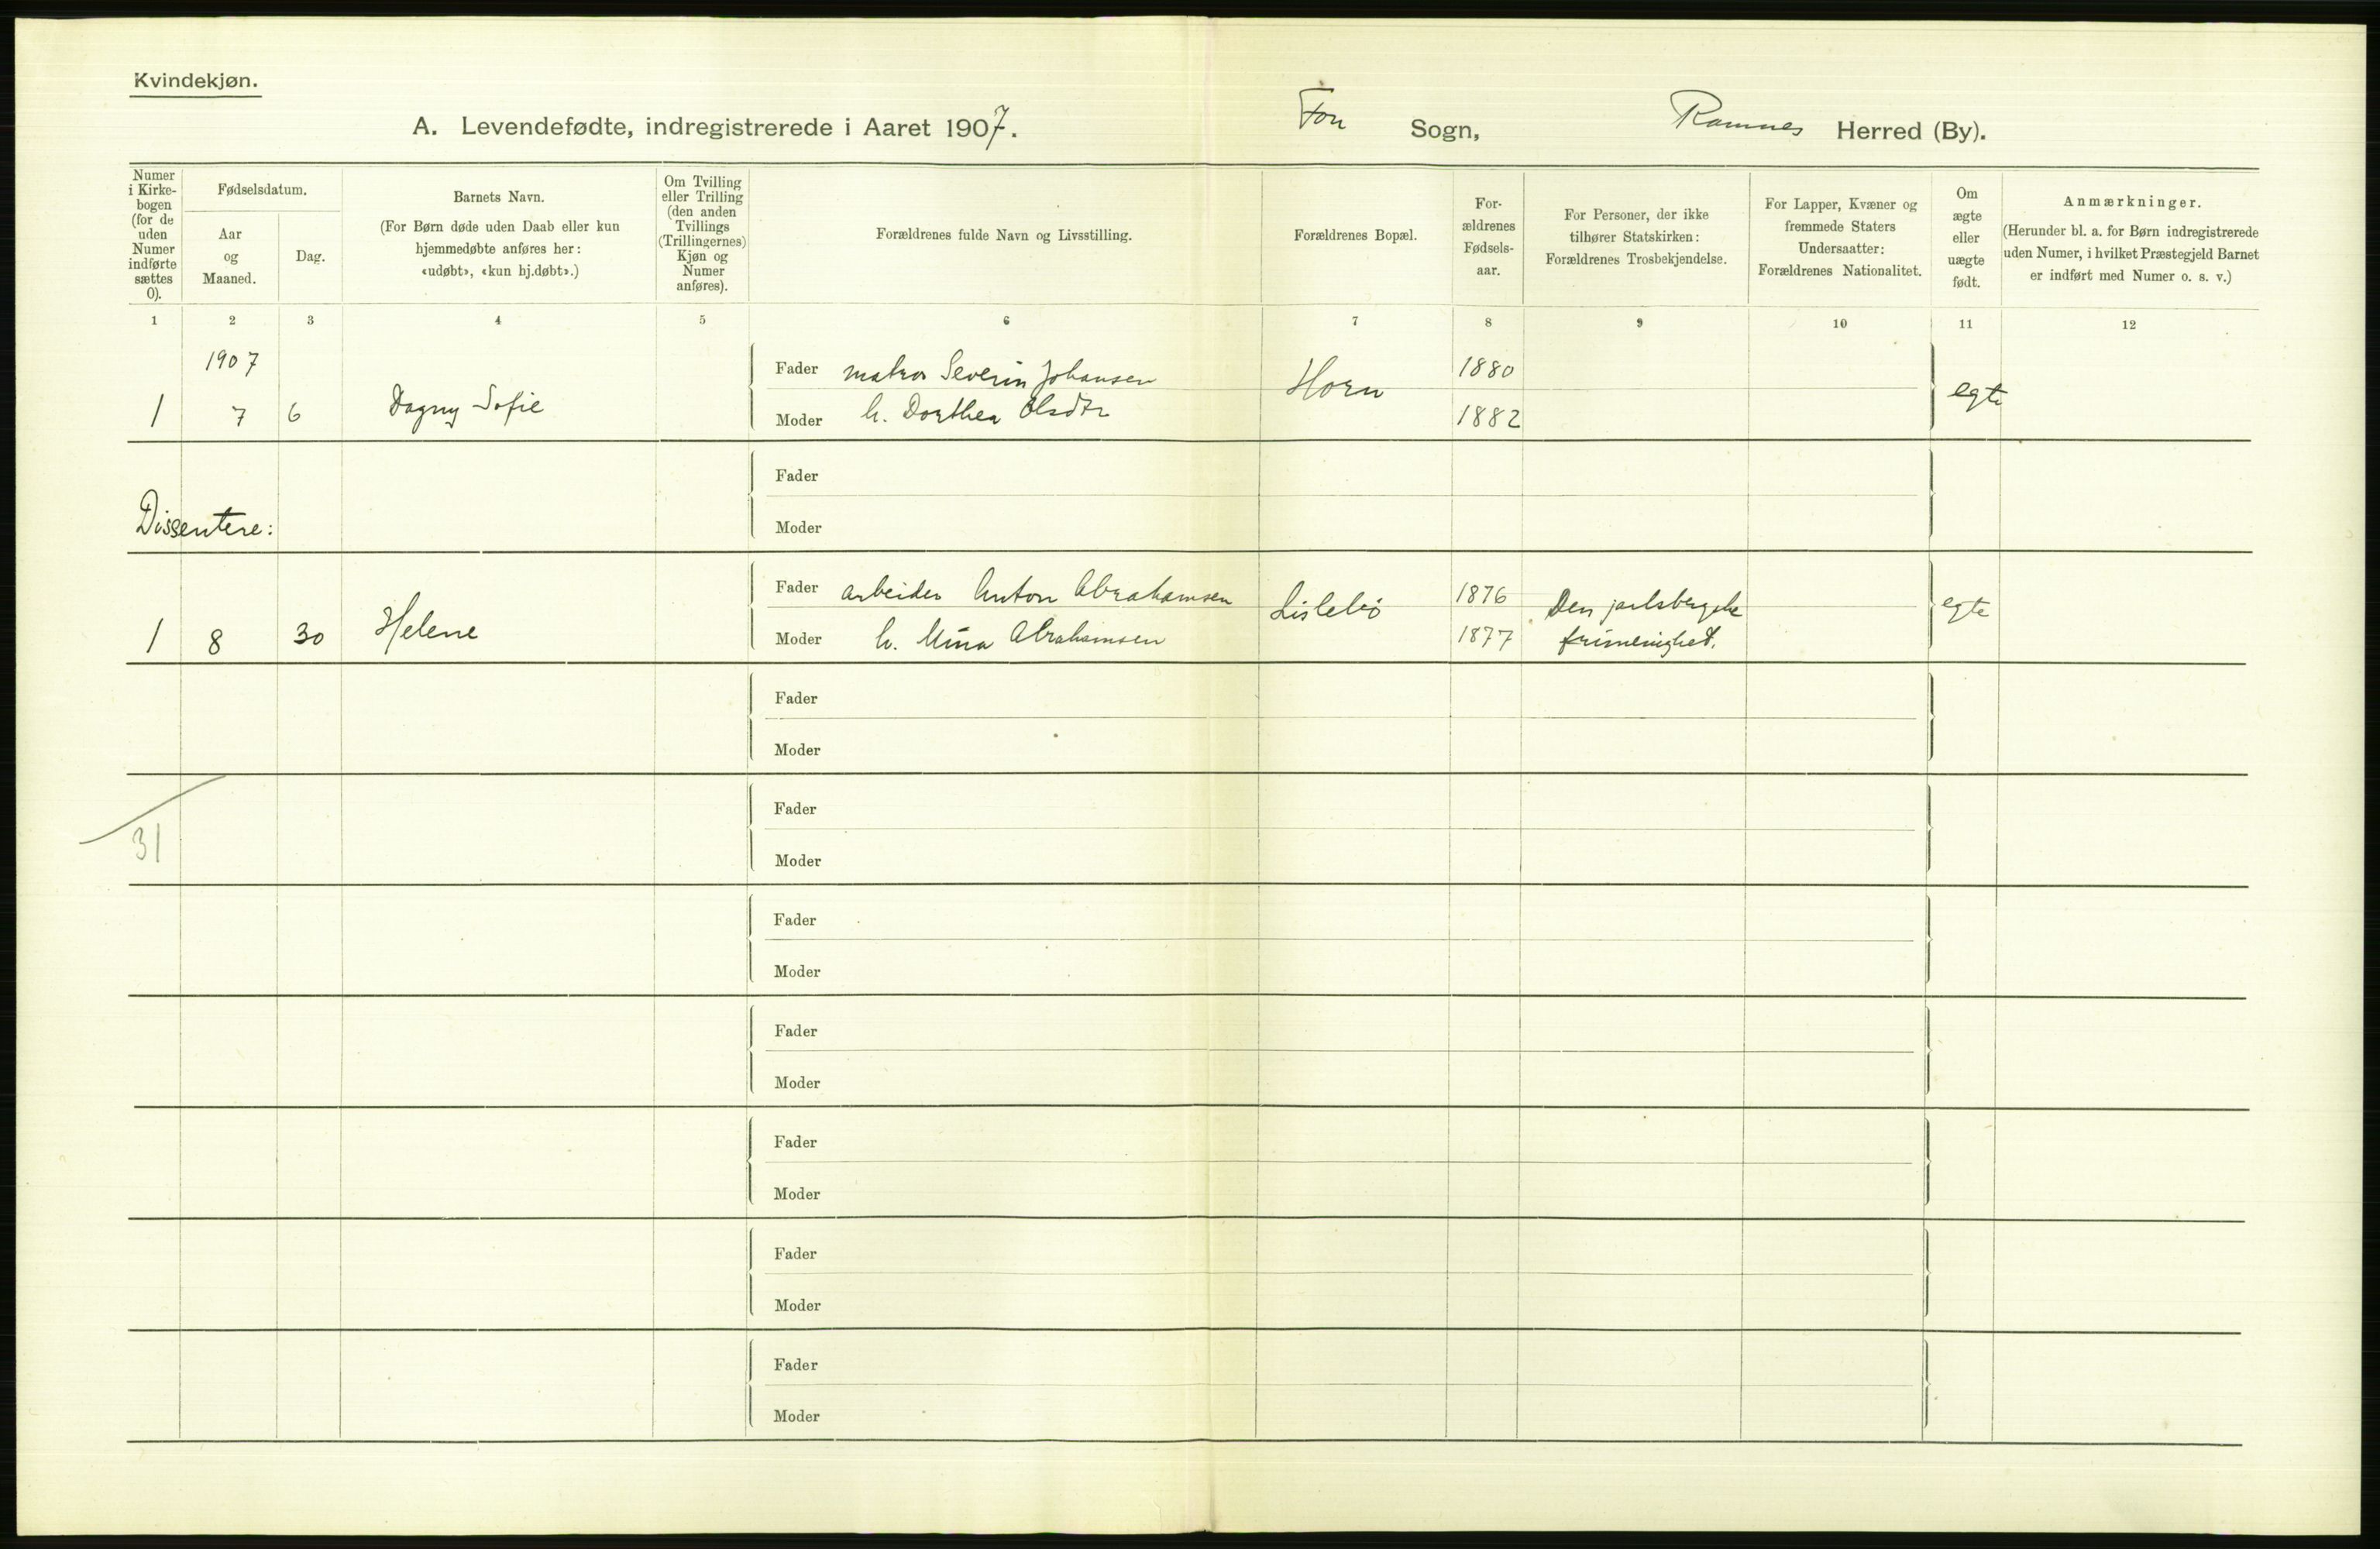 Kvindekjøn.
A. Levendefødte, indregistrerede i Aaret 1907. Fon Sogn, Ramnes Herred (By).
Numer i Kirkebogen (for de uden Numer indførte sættes 0).
Fødselsdatum.
Aar og Maaned.
Dag.
Barnets Navn.
(For Børn døde uden Daab eller kun
hjemmedøbte anføres her:
«udøbt», «kun hj.døbt».)
Om Tvilling
eller Trilling
(den anden
Tvillings
(Trillingernes)
Kjøn og
Numer
anføres).
Forældrenes fulde Navn og Livsstilling.
Forældrenes Bopæl.
For-
ældrenes
Fødsels-
aar.
For Personer, der ikke
tilhører Statskirken:
Forældrenes Trosbekjendelse.
For Lapper, Kvæner og
fremmede Staters
Undersaatter:
Forældrenes Nationalitet.
Om
ægte
eller
uægte
født.
Anmærkninger.
(Herunder bl. a. for Børn indregistrerede
uden Numer, i hvilket Præstegjeld Barnet
er indført med Numer o. s. v.)
1 2 3 4 5 6 7 8 9 10 11 12
1907
Fader matros Severin Johansen Horn 1880
1 7 6 Dagny Sofie Moder h. Dorthea Olsdtr 1882 egte
Fader
Dissentere: Moder
Fader arbeider Anton Abrahamsen Lislebö 1876 Den jarlsbergske egte
1 8 30 Helene Moder h. Mina Abrahamsen 1877 frimenighed.
Fader
Moder
Fader
31 Moder
Fader
Moder
Fader
Moder
Fader
Moder
Fader
Moder
Fader
Moder